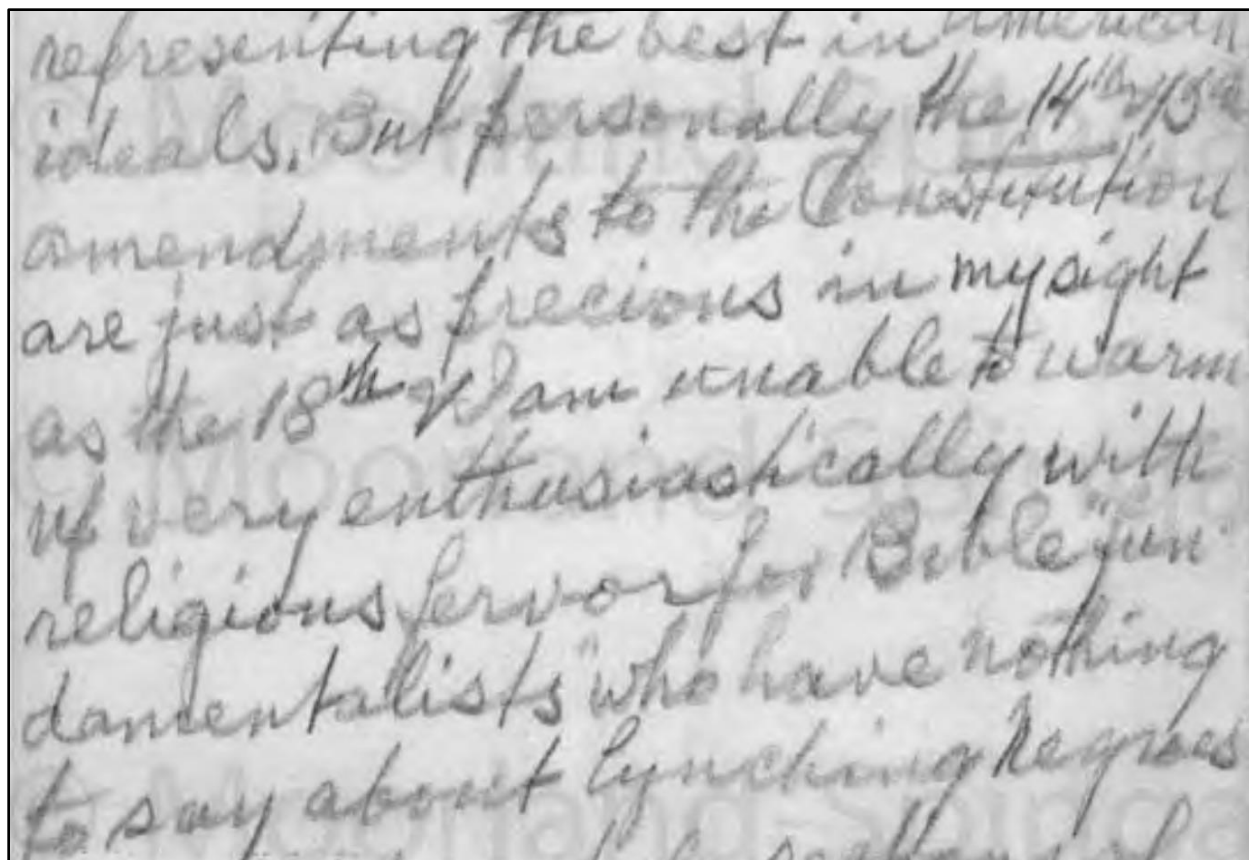 representing the best in American
ideals. But personally the 14th & 15th
amendments to the Constitution
are just as precious in my sight
as the 18th & I am unable to warm
up very enthusiastically with
religious fervor for Bible "fun-
damentalists" who have nothing
to say about lynching Negroes